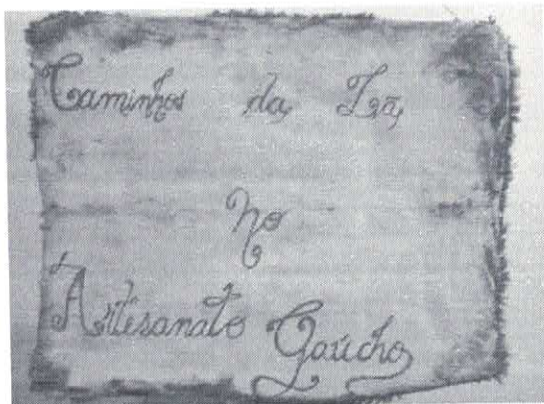 Caminhos da Lã
no
Artesanato Gaúcho